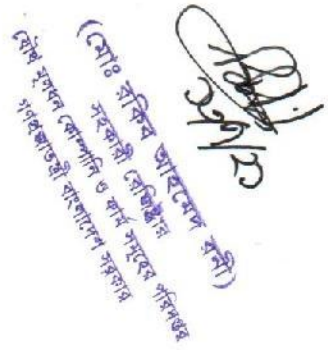 (মোঃ রকিব আহমেদ রনী)
সহকারী রেজিস্ট্রার
যৌথ মূলধন কোম্পানি ও ফার্ম সমূহের পরিদপ্তর
গণপ্রজাতন্ত্রী বাংলাদেশ সরকার